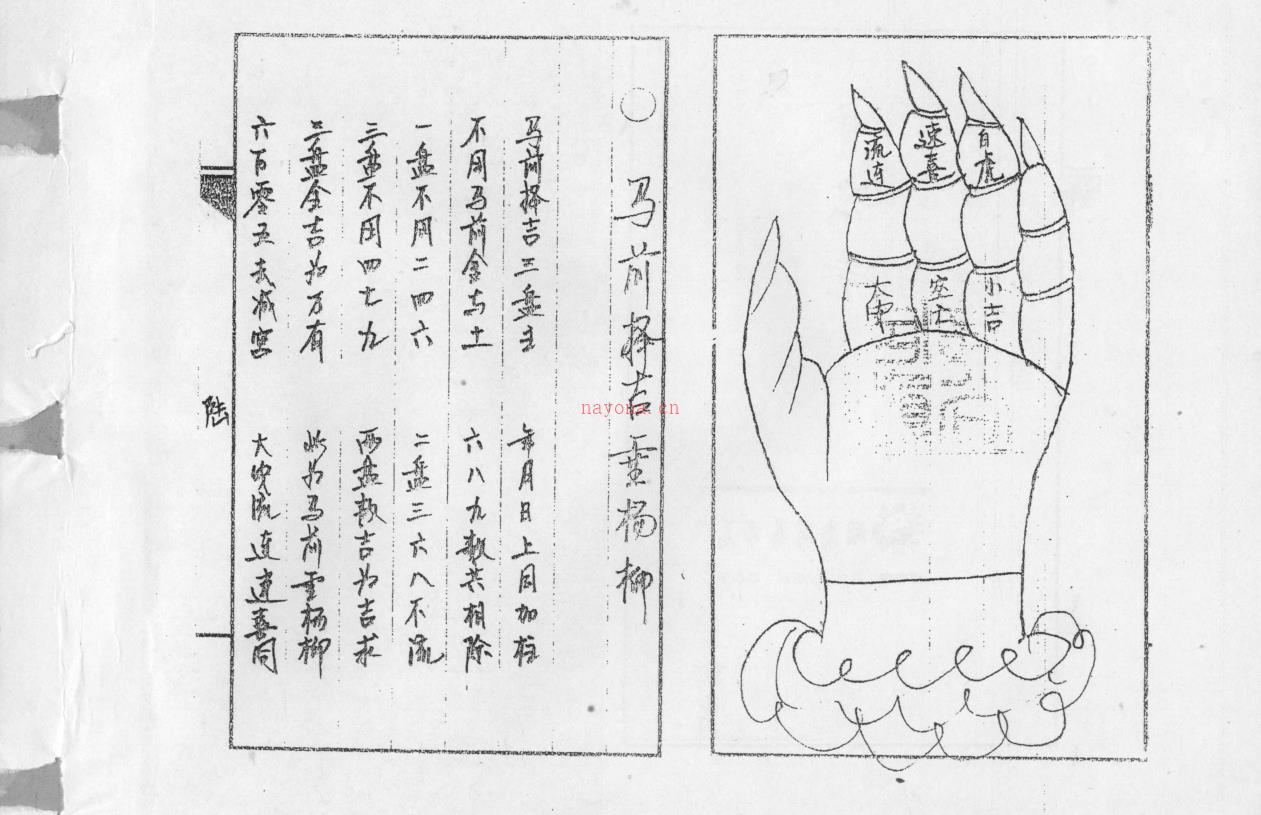 流连
速喜
白虎
大申
空亡
小吉
马前择吉垂杨柳
马前择吉三盘主 年月日上同加柱
不用马前金与土 六八九数共相除
一盘不用二四六 二盘三六八不流
三盘不用四七九 两盘数吉为吉求
三盘全吉为万有 此为马前垂杨柳
六百零五去减宫 大安流连速喜同
陆
nayona.cn